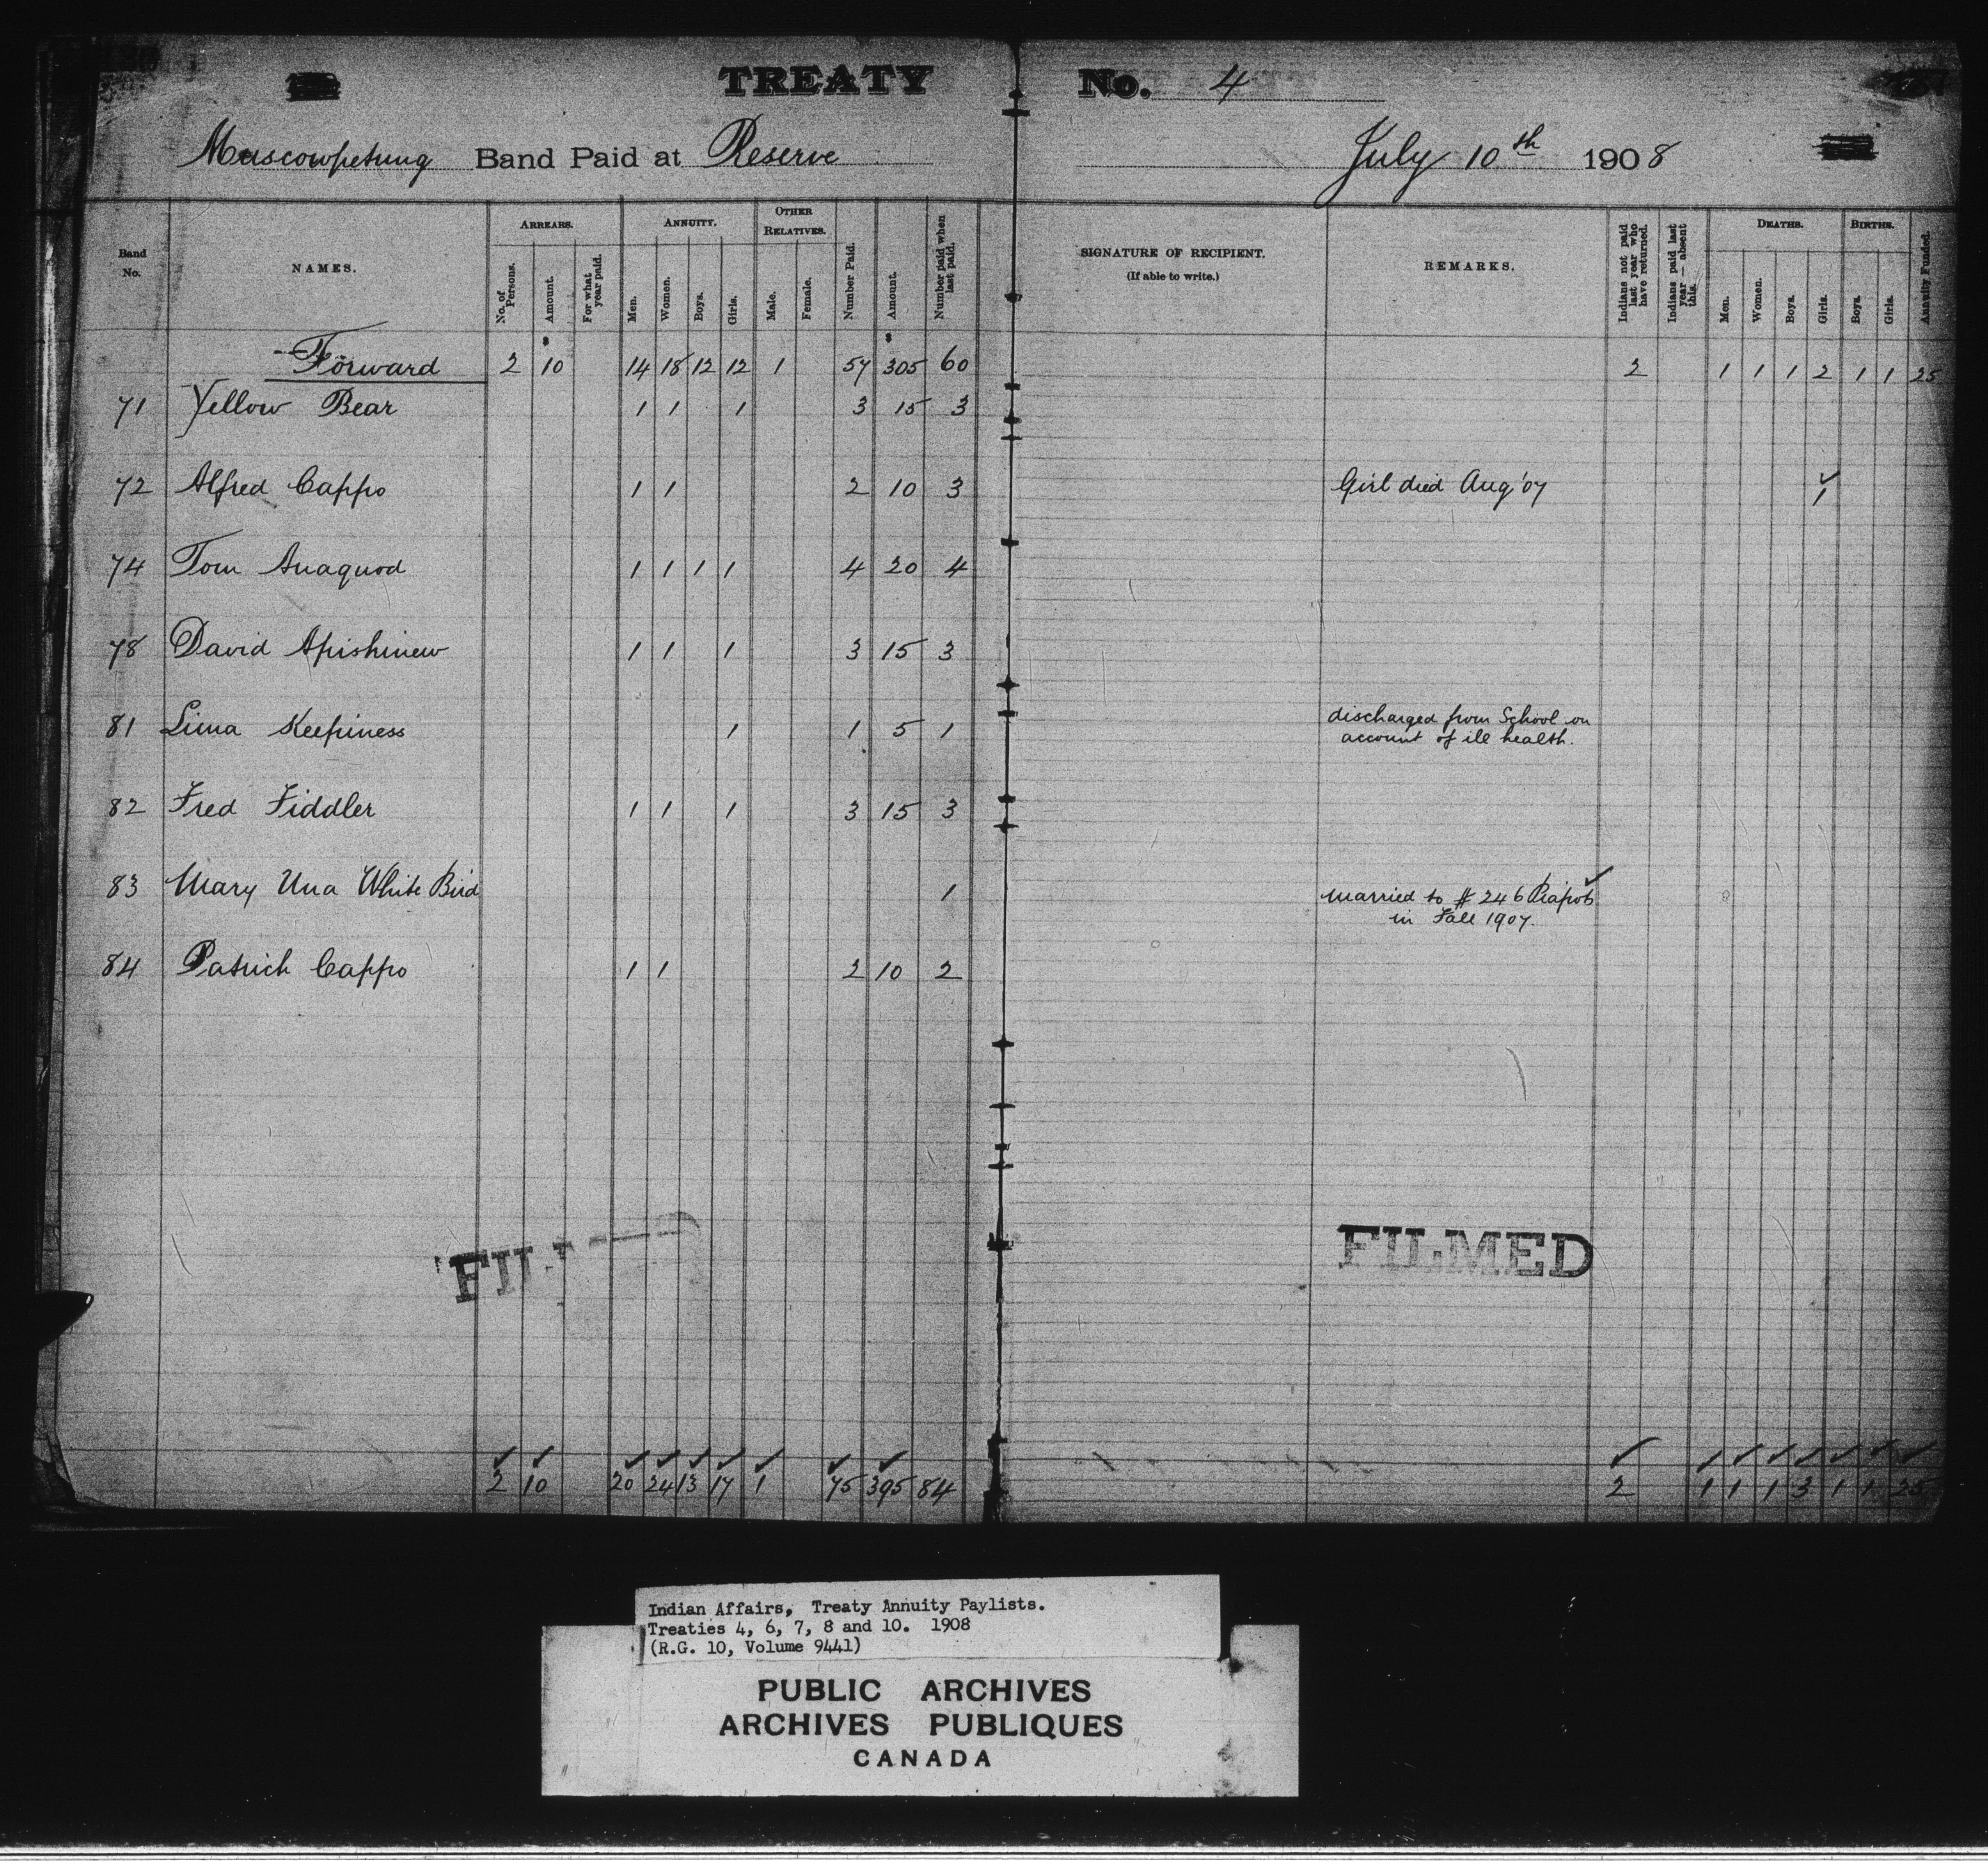 TREATY No. 4
Muscowpetung Band Paid at Reserve July 10th 1908
Band No. NAMES. ARREARS. No. of Persons. Amount. For what year paid. ANNUITY. Men. Women. Boys. Girls. OTHER RELATIVES. Male. Female. Number Paid. Amount. Number paid when last paid. SIGNATURE OF RECIPIENT. (If able to write.) REMARKS. Indians not paid last year who have returned. Indians paid last year — absent this. DEATHS. Men. Women. Boys. Girls. BIRTHS. Boys. Girls. Annuity Funded.
$ $
Forward 2 10 14 18 12 12 1 57 305 60 2 1 1 1 2 1 1 25
71 Yellow Bear 1 1 1 3 15 3
72 Alfred Cappo 1 1 2 10 3 Girl died Aug '07 1
74 Tom Anaquod 1 1 1 1 4 20 4
78 David Apishinew 1 1 1 3 15 3
81 Lima Keepiness 1 1 5 1 discharged from School on
account of ill health.
82 Fred Fiddler 1 1 1 3 15 3
83 Mary Una White Bird 1 married to # 246 Piapots
in Fall 1907.
84 Patrick Cappo 1 1 2 10 2
FILMED
2 10 20 24 13 17 1 75 395 84 2 1 1 1 3 1 1 25
Indian Affairs, Treaty Annuity Paylists.
Treaties 4, 6, 7, 8 and 10. 1908
(R.G. 10, Volume 9441)
PUBLIC ARCHIVES
ARCHIVES PUBLIQUES
CANADA